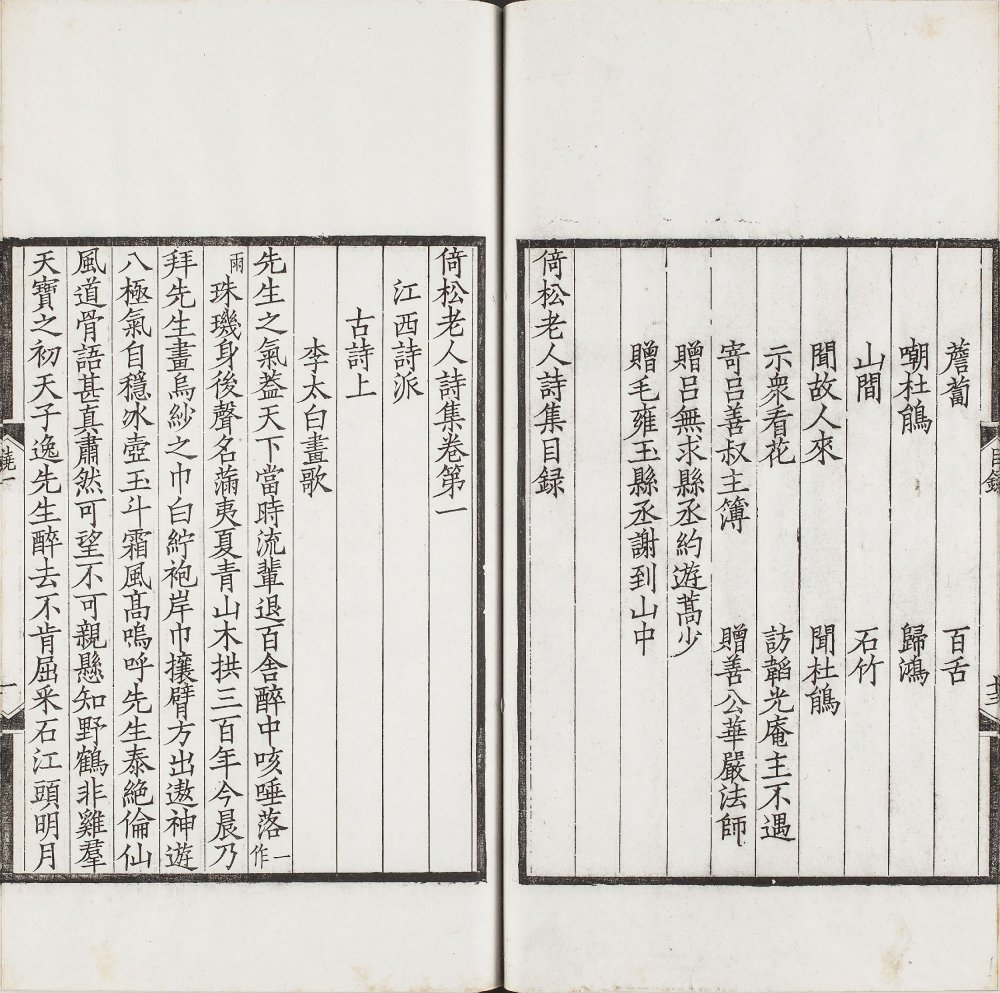 薝蔔 百舌
嘲杜鵑 歸鴻
山間 石竹
聞故人來 聞杜鵑
示衆看花 訪韜光庵主不遇
寄呂善叔主簿 贈善公華嚴法師
贈呂無求縣丞約遊嵩少
贈毛雍玉縣丞謝到山中
倚松老人詩集目録
倚松老人詩集卷第一
江西詩派
古詩上
李太白畫歌
先生之氣葢天下當時流輩退百舍醉中咳唾落一作
雨珠璣身後聲名滿夷夏青山木拱三百年今晨乃
拜先生畫烏紗之巾白紵袍岸巾攘臂方出遨神遊
八極氣自穩冰壺玉斗霜風髙嗚呼先生泰絶倫仙
風道骨語甚真肅然可望不可親懸知野鶴非雞羣
天寶之初天子逸先生醉去不肯屈采石江頭明月
目録
饒一
一